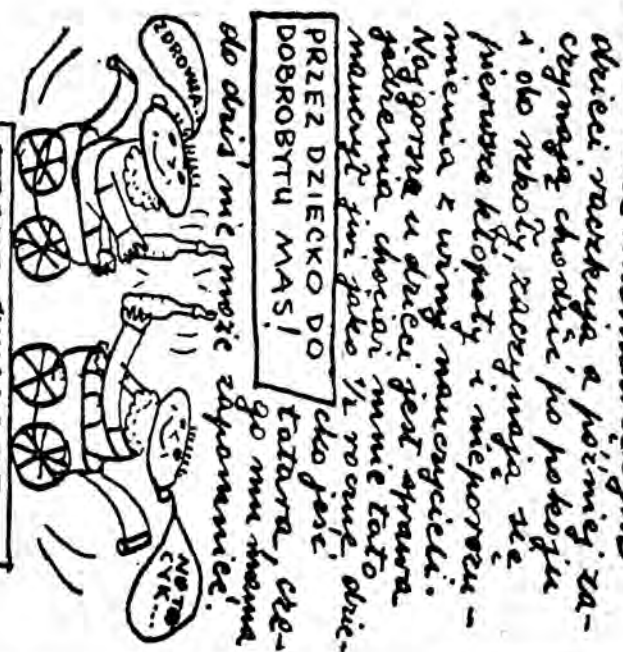 dzieci raczkują a później za-
czynają chodzić po pokoju
i do szkoły, zaczynają się
pierwsze kłopoty i nieporozu-
mienia z winy nauczycieli.
Najgorsza u dzieci jest sprawa
jedzenia chociaż mnie tato
nauczył już jako 1/2 roczne dzie-
PRZEZ DZIECKO DO
DOBROBYTU MAS!
cko jeść
tatara, cze-
go mu mama
do dziś nie może zapomnieć.
NO TO
CYK...